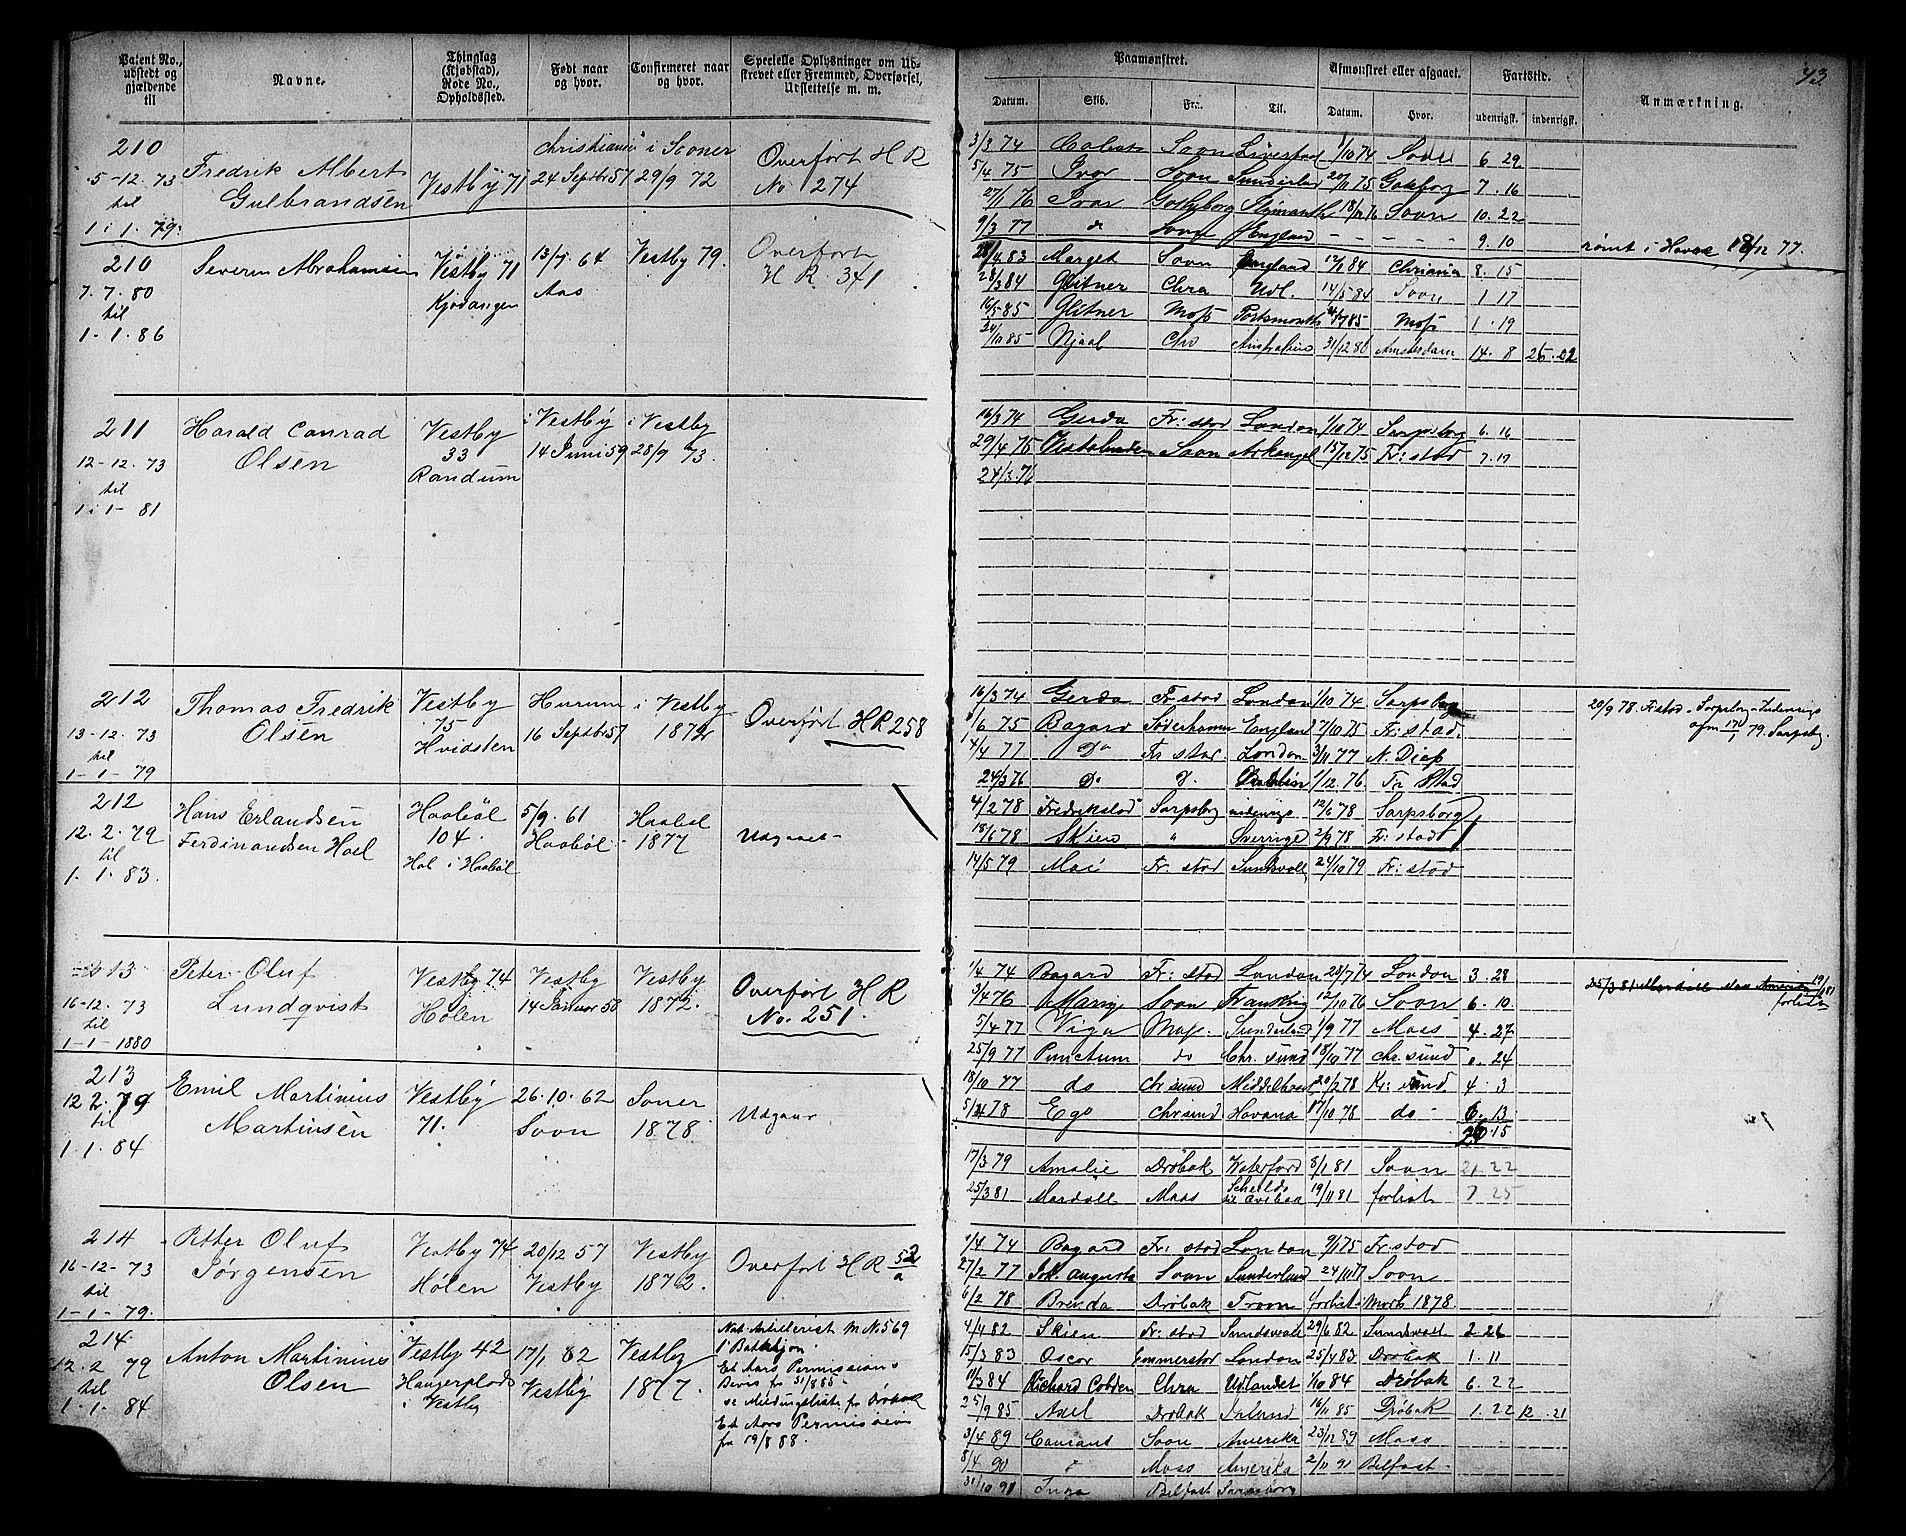 43
Patent No., udstedt og gjældende til
Navne.
Thinglag (Kjøbstad), Rode No., Opholdssted.
Født naar og hvor.
Confirmeret naar og hvor.
Specielle Oplysninger om Udskrevet eller Fremmed, Overførsel, Udslettelse m. m.
Paamønstret.
Datum.
Skib.
Fra.
Til.
Afmønstret eller afgaaet.
Datum.
Hvor.
Fartstid.
udenrigsk.
indenrigsk.
Anmærkning.
210
5-12. 73
til
1-1. 79.
Fredrik Albert
Gulbrandsen
Vestby 71
Christiania
24 Septbr 57
i Sooner
29/9 72
Overført H R
No 274
3/3 74 Soon Liverpool 1/10 74 Soon 6. 29
5/4 75 Ivar Soon Sunderland 20/11 75 Goteborg 7. 16
27/1 76 Ivar Gotheborg 18/12 76 Soon 10. 22
9/3 77 do Soon England - - - - 9. 10
rømt i Havre 18/12 77.
210
7. 7. 80
til
1-1. 86
Severin Abrahamsen
Vestby 71
Kjøvangen
13/7 64
Aas
Vestby 79.
Overført
H R. 341
28/4 83 Marget Soon England 12/1 84 Chriania 8. 15
28/3 84 Glitner Chra Udl. 14/5 84 Soon 1 17
16/5 85 Glitner Moss Portsmouth 85 Moss 1. 19
24/10 85 Njaal Chr Australien 31/12 86 Amsterdam 14. 8 25. 22
211
12-12. 73
til
1-1- 81
Harald Conrad
Olsen
Vestby
33
Randum
i Vestby
14 Juni 59
i Vestby
28/9 73.
16/3 74 Gerda Fr: stad London 1/10 74 Sarpsborg 6. 16
29/4 75 Soon Arkengel 15/12 75 Fr: stad 7. 17
24/3. 76
212
13-12. 73
til
1-1- 79
Thomas Fredrik
Olsen
Vestby
75
Hvidsten
Hurum
16 Septbr 57
i Vestby
1872
Overført H R 258
16/3 74 Gerda Fr stad London 1/10 74 Sarpsborg
1/6 75 Bagard Söderhamn England 27/10 75 Fr: stad.
4/4 77 Do Fr stad. London 3/11 77 N. Diep
24/3 76 Do d. 1/12. 76 Fr Stad
4/2 78 Fredrikstad Sarpsborg indenrigs 12/6 78 Sarpsborg
18/6 78 Skien " Sverrige 2/9 78 Fr: stad
20/9 78. Fr.stad - Sarpsborg - Indenrigs
afm 17/1 79. Sarpsbg.
212
12. 2. 79
til
1. 1. 83.
Hans Erlandsen
Ferdinandsen Hoel
Haabøl
104.
Hol i Haabøl
5/9. 61
Haabøl
Haabøl
1877
Udgaaet
14/5 79 Mai Fr: stad Sundsvall 24/10 79 Fr: stad
213
16-12. 73
til
1-1- 1880
Peter Oluf
Lundqvist
Vestby 74
Hølen
Vestby
14 Januar 58
Vestby
1872.
Overført H R
No. 251.
1/4 74 Bagard Fr: stad London 28/7 74 London 3. 28
3/4 76 Mary Soon Frankrig 12/10 76 Soon 6. 10
5/4 77 Viga Moss. Sunderland 1/9 77 Moss 4. 27
25/9 77 Punctum do Chr. sund 18/10 77 Chr. sund 0. 24
18/10 77 do Chr sund 20/2 78 Kr: sund 4. 3
78 Ego Chrsund Havana 17/10 78 do 6. 13
15
213
12 2. 79
til
1. 1. 84
Emil Martinius
Martinsen
Vestby
71.
26. 10. 62
Soon
Soner
1878.
Udgaar
17/3 79 Amalie Drøbak Waterford 8/1 81 Soon 21. 22
25/3 81 Mardøll Moss 19/11 81 forlist 7 25
214
16-12- 73
til
1-1- 79.
Petter Oluf
Jørgensen
Vestby 74
Hølen
20/12 57
Vestby
Vestby
1872.
Overført H R 52/a
1/4 74 Bagard Fr: stad London 9/1 75 Fr: stad
27/2 77 Joh. Augusta Soon Sunderland 24/10 77 Soon
6/2 78 Brenda Drøbak Troon forlist i Marts 1878.
214
12. 2 79
til
1. 1. 84
Anton Martinius
Olsen
Vestby 42
i Vestby
17/1 62
Vestby
Vestby
1877.
No. 569
Et Aars Permissions
Bevis fra 31/8 85 -
se Meldingsliste fr Drøbak
Et Aars Permission
fra 19/8 88.
4/4 82 Skien Fr: stad Sundsvall 29/6 82 Sundsvall 2 26
15/3 83 Oscar London 25/4 83 Drøbak 1. 11
84 Richard Cobden Chra Udlandet 1/10 84 Drøbak 6. 22
25/9 85 Axel Drøbak Irland 16/11 85 Drøbak 1. 22 12. 21
3/4 89 Soon Amerika 23/12 89 Moss
8/4 90 Moss Amerika 2/11 91 Belfast
31/10 91 Inga Belfast Sarpsborg